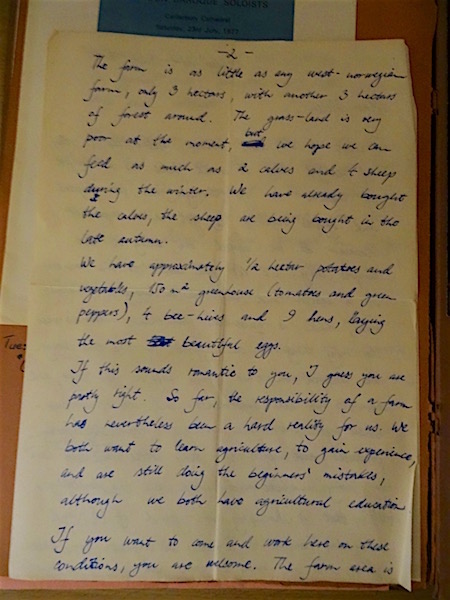 BAROQUE SOLOISTS
Canterbury Cathedral
Saturday, 23rd July, 1977
-2-
The farm is as little as any west-norwegian
farm, only 3 hectars, with another 3 hectars
of forest around. The grass-land is very
poor at the moment, but we hope we can
feed as much as 2 calves and 4 sheep
during the winter. We have already bought
the calves, the sheep are being bought in the
late autumn.
We have approximately 1/2 hectar potatoes and
vegetables, 150 m² greenhouse (tomatoes and green
peppers), 4 bee-hives and 9 hens, laying
the most beautiful eggs.
If this sounds romantic to you, I guess you are
pretty right. So far, the responsibility of a farm
has nevertheless been a hard reality for us. We
both want to learn agriculture, to gain experience,
and are still doing the beginners' mistakes,
although we both have agricultural education
If you want to come and work here on these
conditions, you are welcome. The farm area is